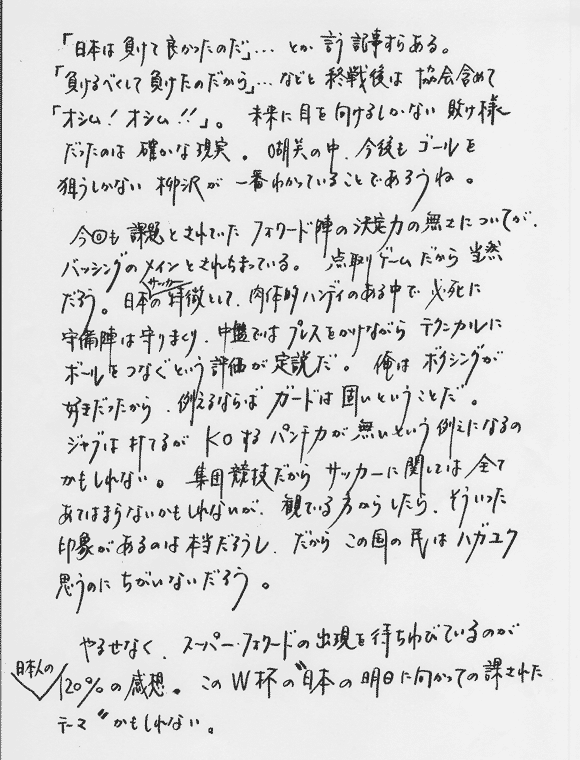 「日本は負けて良かったのだ」… とか言う記事すらある。
「負けるべくして負けたのだから」… などと終戦後は協会含めて
「オシム！オシム!!」。未来に目を向けるしかない敗け様
だったのは確かな現実。嘲笑の中、今後もゴールを
狙うしかない柳沢が一番わかっていることであろうね。
今回も課題とされていたフォワード陣の決定力の無さについてが、
バッシングのメインとされちまっている。点取りゲームだから当然
だろう。日本のサッカー特徴として、肉体的ハンディのある中で必死に
守備陣は守りまくり、中盤ではプレスをかけながらテクニカルに
ボールをつなぐという評価が定説だ。俺はボクシングが
好きだったから、例えるならばガードは固いということだ。
ジャブは打てるがKOするパンチ力が無いという例えになるの
かもしれない。集団競技だからサッカーに関しては全て
あてはまらないかもしれないが、観ている方からしたら、そういった
印象があるのは本当だろうし、だからこの国の民はハガユク
思うのにちがいないだろう。
やるせなく、スーパー・フォワードの出現を待ちわびているのが
日本人の120%の感想。このW杯の〝日本の明日に向かっての課された
テーマ〟かもしれない。